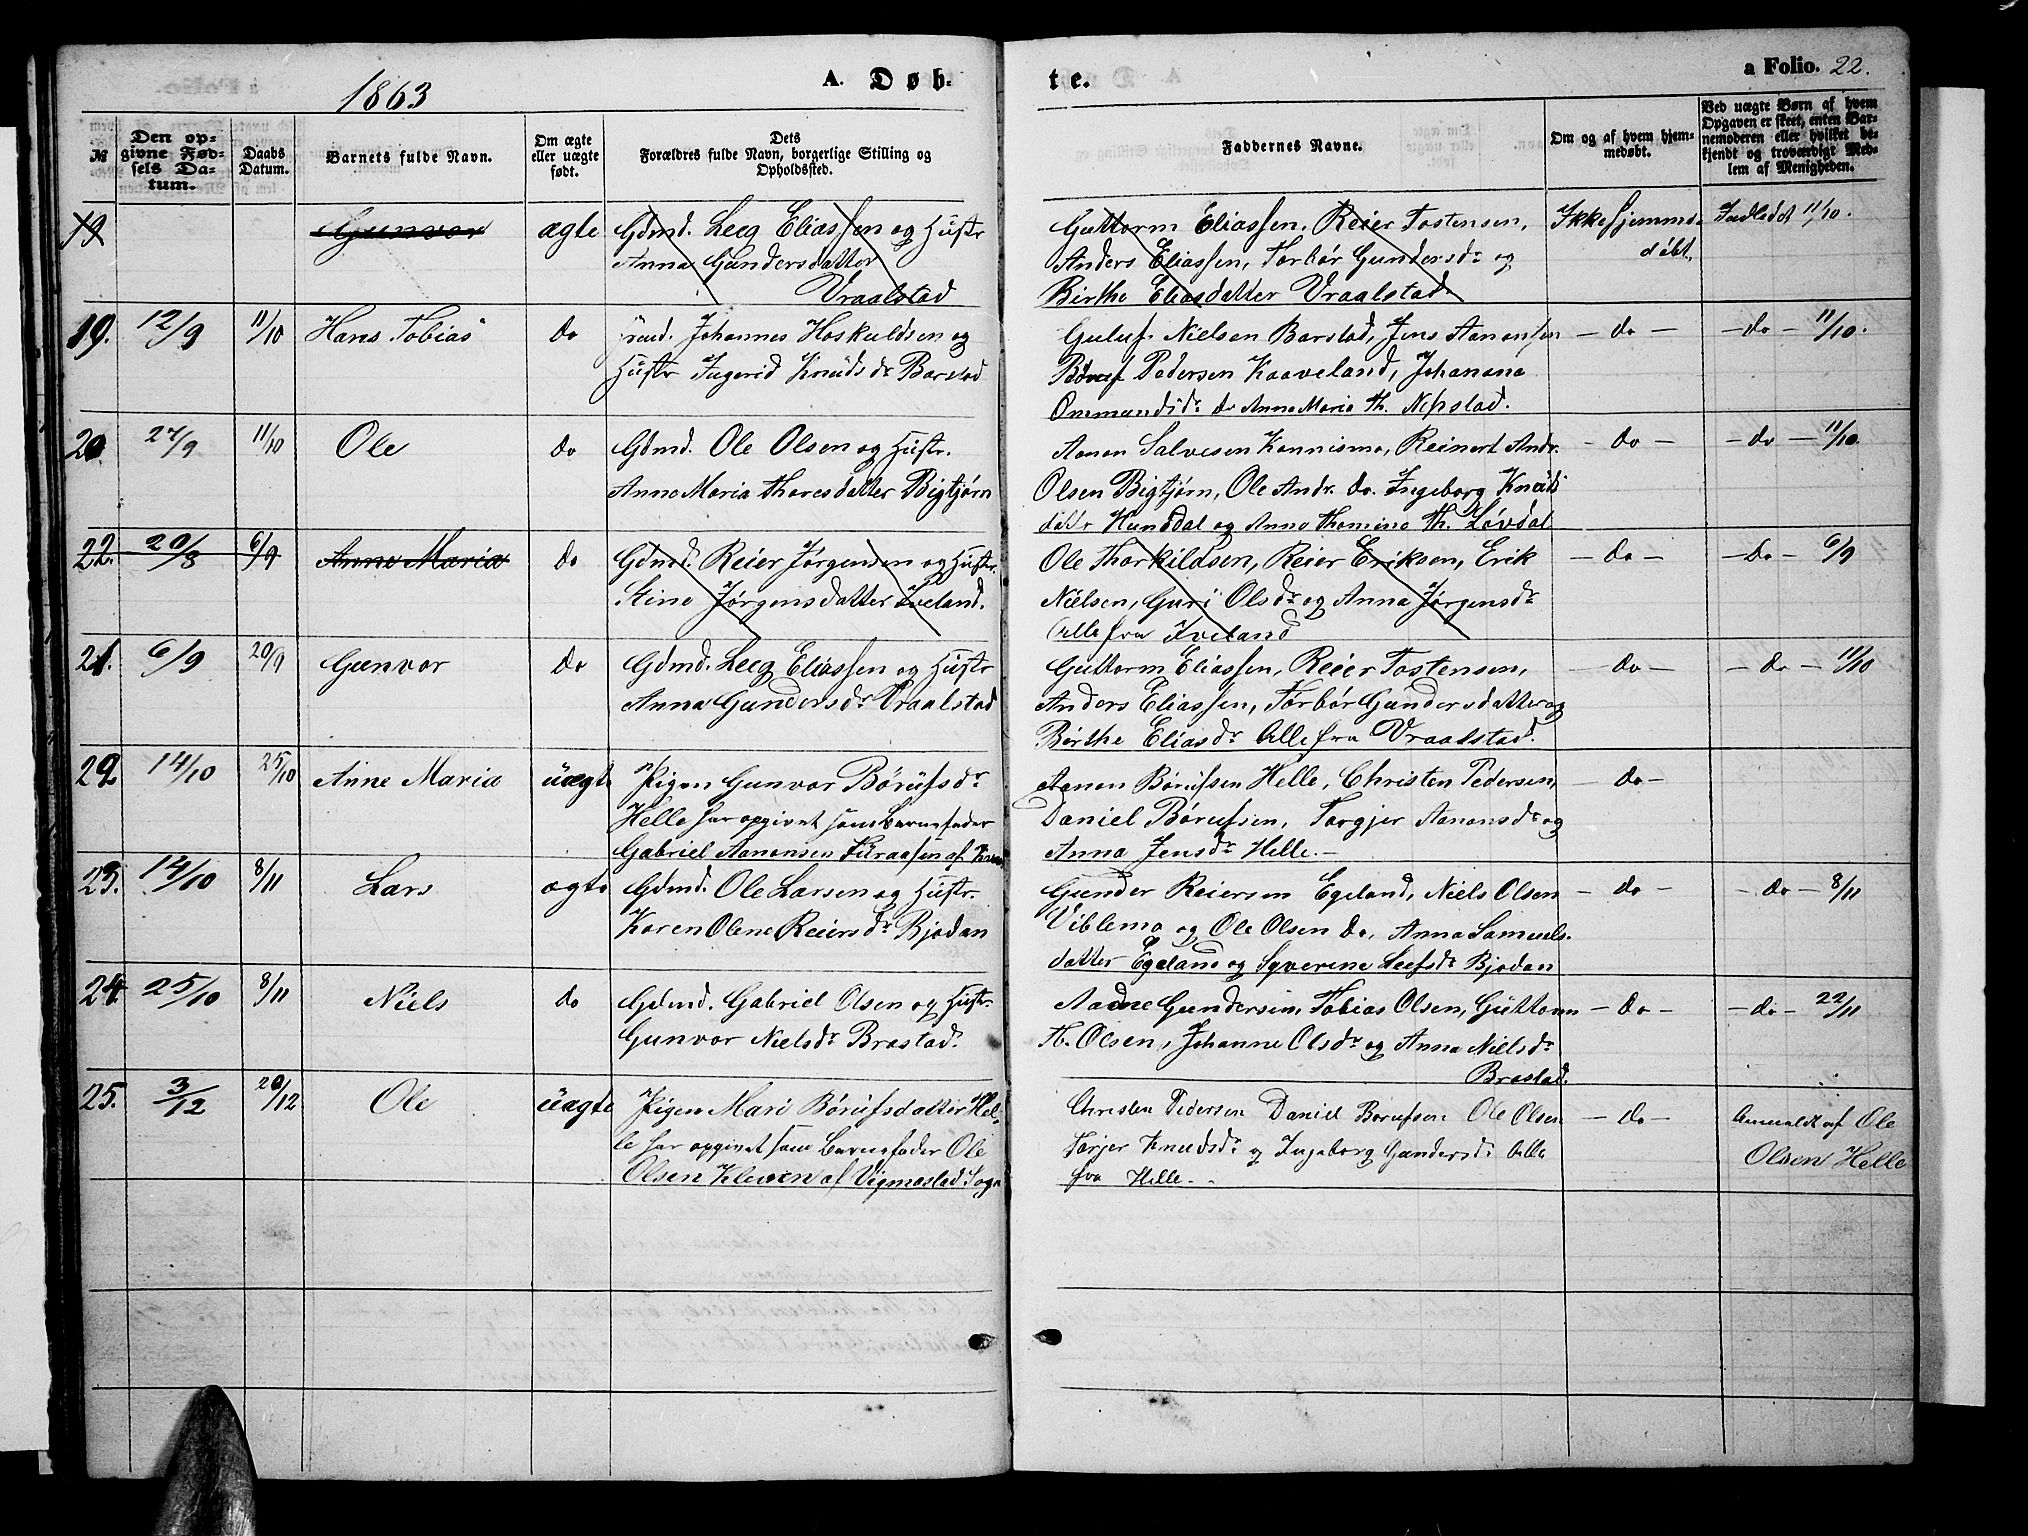 1863
A. Døb-
te.
a Folio. 22.
№
Den op-
givne Fød-
sels Da-
tum.
Daabs
Datum.
Barnets fulde Navn.
Om ægte
eller uægte
født.
Dets
Forældres fulde Navn, borgerlige Stilling og
Opholdssted.
Faddernes Navne.
Om og af hvem hjem-
medøbt.
Ved uægte Børn af hvem
Opgaven er skeet, enten Bar-
nemoderen eller hvilket be-
kjendt og troværdigt Med-
lem af Menigheden.
19
Gunvor
ægte
Gdmd. Leeg Eliassen og Hustr
Anna Gundersdatter
Vraalstad
Guttorm Eliassen, Reier Tostensen,
Anders Eliassen, Torbør Gundersdr og
Birthe Eliasdatter Vraalstad.
Ikke hjemme
døbt.
Indledet 11/10.
19.
12/9
11/10
Hans Tobias
do
Johannes Hoskuldsen og
Hustr Ingerid Knudsdr Barstad
Guluf Nielsen Barstad, Jens Aanonsen
Pedersen Kaaveland, Johanna
Ommundsdr do Anne Maria Th. Nepstad.
— do —
— do — 11/10.
20
27/9
11/10
Ole
do
Gdmd. Ole Olsen og Hustr.
Anne Maria Thoresdatter Bigtjørn
Aanon Salvesen Konnismo, Reinert Andr.
Olsen Bigtjørn, Ole Andr. do. Ingeborg Knuds
datr Hunsdal og Anne Thomine Th. Løvdal
— do —
— do — 11/10.
22.
20/8
6/9
Anne Maria
do
Gdmd. Reier Jørgensen og Hustr.
Stine Jørgensdatter Iveland.
Ole Thorkildsen, Reier Eriksen, Erik
Nielsen, Guri Olsdr og Anna Jørgensdr
Alle fra Iveland
— do —
— do — 6/9
21.
6/9
20/9
Gunvor
do
Gdmd. Leeg Eliassen og Hustr
Anna Gundersdr Vraalstad
Guttorm Eliassen, Reier Tostensen,
Anders Eliassen, Torbør Gundersdatter og
Birthe Eliasdr Alle fra Vraalstad.
— do —
— do — 11/10
22
14/10
25/10
Anne Maria
uægte
Pigen Gunvor Børufsdr
Helle har opgivet som Barnefader
Gabriel Aanonsen
Aanon Børufsen Helle, Christen Pedersen,
Daniel Børufsen, Torgjer Aanonsdr og
Anna Jensdr Helle. —
— do —
23.
14/10
8/11
Lars
ægte
Gdmd. Ole Larsen og Hustr.
Karen Olene Reiersdr Bjodan
Gunder Reiersen Egeland, Niels Olsen
Viblemo og Ole Olsen do, Anna Samuels.
datter Egeland og Syverine Leefsdr Bjodan
— do —
— do — 8/11
24.
25/10
8/11
Niels
do
Gdmd. Gabriel Olsen og Hustr.
Gunvor Nielsdr Brastad.
Aadne Gundersen, Tobias Olsen, Guttorm
Th. Olsen, Johanne Olsdr og Anna Nielsdr
Brastad.
— do —
— do — 22/11
25.
3/12
20/12
Ole
uægte
Pigen Mari Børufsdatter Hel-
le har opgivet som Barnefader Ole
Olsen Kleven af Vigmostad Sogn
Christen Pedersen Daniel Børufsen Ole Olsen
Torjer Knudsdr og Ingeborg Gundersdr Alle
fra Helle. -
— do —
Anmeldt af Ole
Olsen Helle